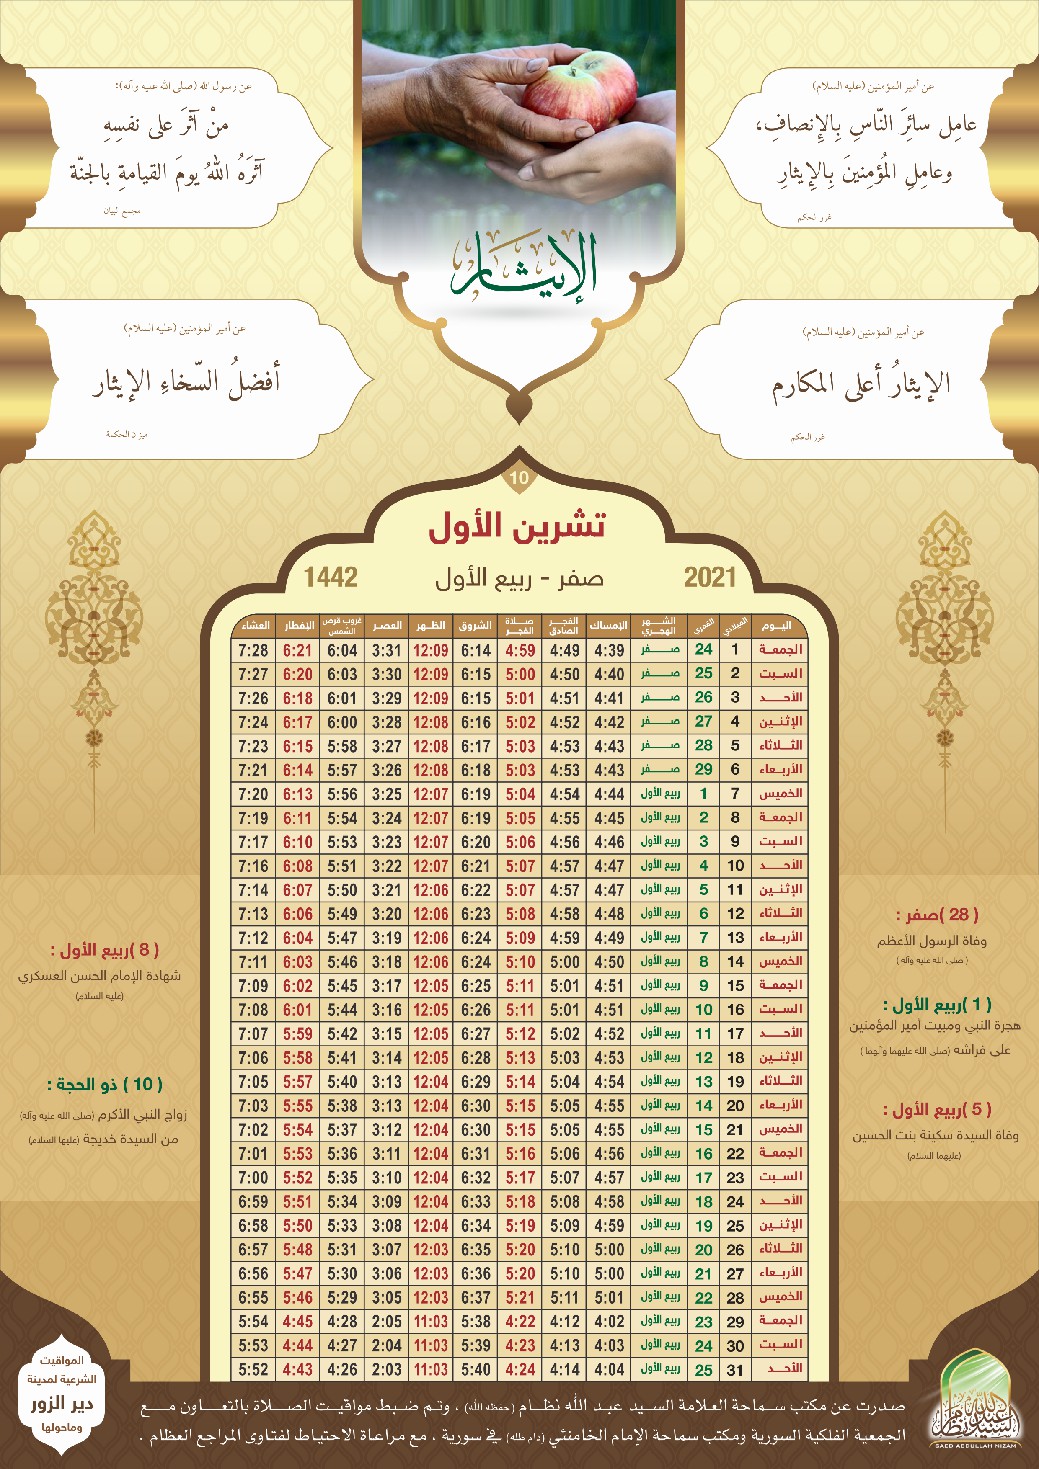 عن أمير المؤمنين (عليه السلام)
عامِل سائِرَ النّاسِ بِالإِنصافِ،
وعامِلِ المُؤمِنينَ بِالإِيثارِ
غرر الحكم
عن رسول الله (صلى الله عليه وآله):
منْ آثَرَ على نفسِهِ
آثَرَهُ اللهُ يومَ القيامةِ بالجنّة
مجمع البيان
الإيثار
عن أمير المؤمنين (عليه السلام)
الإيثارُ أعلى المكارم
غرر الحكم
عن أمير المؤمنين (عليه السلام)
أفضلُ السّخاءِ الإيثار
ميزان الحكمة
10
تشرين الأول
2021 صفر - ربيع الأول 1442
اليوم الميلادي القمري الشهر الهجري الإمساك الفجر الصادق صلاة الفجر الشروق الظهر العصر غروب قرص الشمس الإفطار العشاء
الجمعة 1 24 صفر 4:39 4:49 4:59 6:14 12:09 3:31 6:04 6:21 7:28
السبت 2 25 صفر 4:40 4:50 5:00 6:15 12:09 3:30 6:03 6:20 7:27
الأحد 3 26 صفر 4:41 4:51 5:01 6:15 12:09 3:29 6:01 6:18 7:26
الإثنين 4 27 صفر 4:42 4:52 5:02 6:16 12:08 3:28 6:00 6:17 7:24
الثلاثاء 5 28 صفر 4:43 4:53 5:03 6:17 12:08 3:27 5:58 6:15 7:23
الأربعاء 6 29 صفر 4:43 4:53 5:03 6:18 12:08 3:26 5:57 6:14 7:21
الخميس 7 1 ربيع الأول 4:44 4:54 5:04 6:19 12:07 3:25 5:56 6:13 7:20
الجمعة 8 2 ربيع الأول 4:45 4:55 5:05 6:19 12:07 3:24 5:54 6:11 7:19
السبت 9 3 ربيع الأول 4:46 4:56 5:06 6:20 12:07 3:23 5:53 6:10 7:17
الأحد 10 4 ربيع الأول 4:47 4:57 5:07 6:21 12:07 3:22 5:51 6:08 7:16
الإثنين 11 5 ربيع الأول 4:47 4:57 5:07 6:22 12:06 3:21 5:50 6:07 7:14
الثلاثاء 12 6 ربيع الأول 4:48 4:58 5:08 6:23 12:06 3:20 5:49 6:06 7:13
الأربعاء 13 7 ربيع الأول 4:49 4:59 5:09 6:24 12:06 3:19 5:47 6:04 7:12
الخميس 14 8 ربيع الأول 4:50 5:00 5:10 6:24 12:06 3:18 5:46 6:03 7:11
الجمعة 15 9 ربيع الأول 4:51 5:01 5:11 6:25 12:05 3:17 5:45 6:02 7:09
السبت 16 10 ربيع الأول 4:51 5:01 5:11 6:26 12:05 3:16 5:44 6:01 7:08
الأحد 17 11 ربيع الأول 4:52 5:02 5:12 6:27 12:05 3:15 5:42 5:59 7:07
الإثنين 18 12 ربيع الأول 4:53 5:03 5:13 6:28 12:05 3:14 5:41 5:58 7:06
الثلاثاء 19 13 ربيع الأول 4:54 5:04 5:14 6:29 12:04 3:13 5:40 5:57 7:05
الأربعاء 20 14 ربيع الأول 4:55 5:05 5:15 6:30 12:04 3:13 5:38 5:55 7:03
الخميس 21 15 ربيع الأول 4:55 5:05 5:15 6:30 12:04 3:12 5:37 5:54 7:02
الجمعة 22 16 ربيع الأول 4:56 5:06 5:16 6:31 12:04 3:11 5:36 5:53 7:01
السبت 23 17 ربيع الأول 4:57 5:07 5:17 6:32 12:04 3:10 5:35 5:52 7:00
الأحد 24 18 ربيع الأول 4:58 5:08 5:18 6:33 12:04 3:09 5:34 5:51 6:59
الإثنين 25 19 ربيع الأول 4:59 5:09 5:19 6:34 12:04 3:08 5:33 5:50 6:58
الثلاثاء 26 20 ربيع الأول 5:00 5:10 5:20 6:35 12:03 3:07 5:31 5:48 6:57
الأربعاء 27 21 ربيع الأول 5:00 5:10 5:20 6:36 12:03 3:06 5:30 5:47 6:56
الخميس 28 22 ربيع الأول 5:01 5:11 5:21 6:37 12:03 3:05 5:29 5:46 6:55
الجمعة 29 23 ربيع الأول 4:02 4:12 4:22 5:38 11:03 2:05 4:28 4:45 5:54
السبت 30 24 ربيع الأول 4:03 4:13 4:23 5:39 11:03 2:04 4:27 4:44 5:53
الأحد 31 25 ربيع الأول 4:04 4:14 4:24 5:40 11:03 2:03 4:26 4:43 5:52
( 28 )صفر :
وفاة الرسول الأعظم
( صلى الله عليه وآله )
( 1 )ربيع الأول :
هجرة النبي ومبيت أمير المؤمنين
على فراشه (صلى الله عليهما وآلهما )
( 5 )ربيع الأول :
وفاة السيدة سكينة بنت الحسين
(عليهما السلام)
( 8 )ربيع الأول :
شهادة الإمام الحسن العسكري
(عليه السلام)
( 10 ) ذو الحجة :
زواج النبي الأكرم (صلى الله عليه وآله)
من السيدة خديجة (عليها السلام)
صدرت عن مكتب سماحة العلامة السيد عبد الله نظام (حفظه الله) ، وتم ضبط مواقيت الصلاة بالتعاون مع
الجمعية الفلكية السورية ومكتب سماحة الإمام الخامنئي (دام ظله) في سورية ، مع مراعاة الاحتياط لفتاوى المراجع العظام .
المواقيت
الشرعية لمدينة
دير الزور
وماحولها
SAED ABDULLAH NIZAM